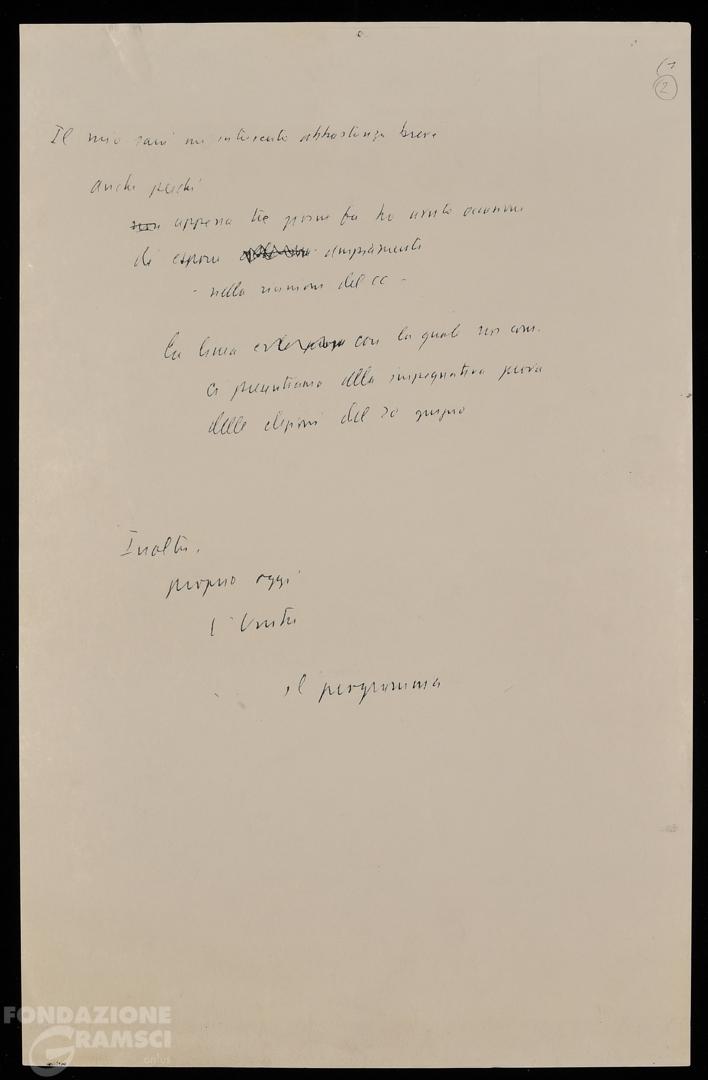 2
Il mio sarà un intervento abbastanza breve
anche perché
appena tre giorni fa ho avuto occasione
di esporre ampiamente
- nella riunione del CC -
la linea con la quale noi com.
ci presentiamo alla impegnativa prova
delle elezioni del 20 giugno
Inoltre,
proprio oggi
l'Unità
il programma
FONDAZIONE
GRAMSCI
onlus